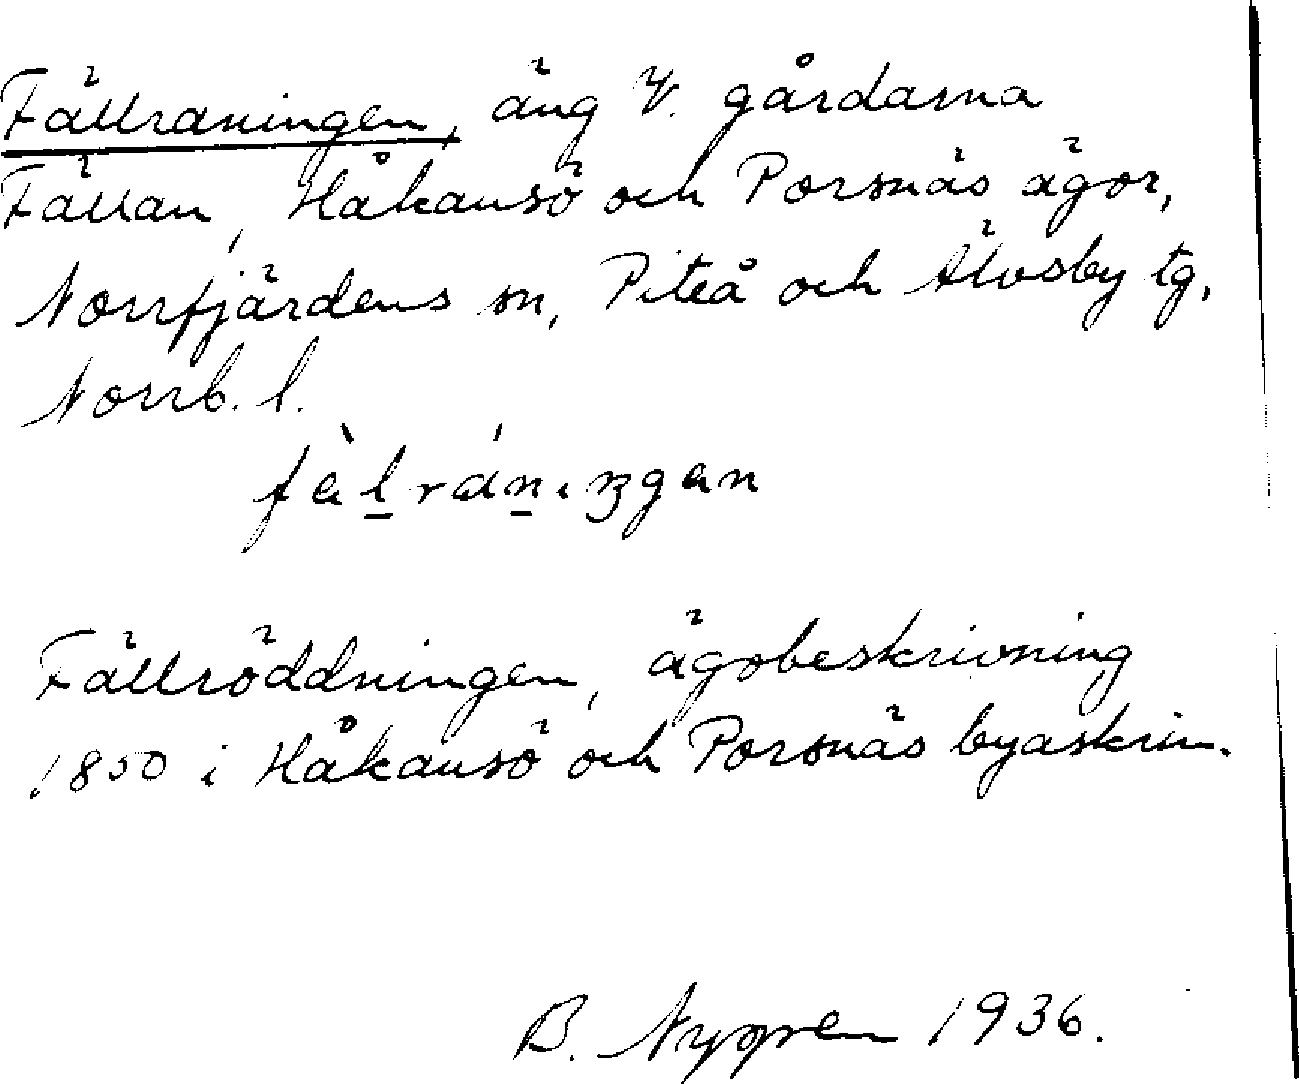 Fällraningen, äng V. gårdarna
Fällan, Håkansö och Porsnäs ägor,
Norrfjärdens sn, Piteå och Älvsby tg,
Norrb. l.
Fällröddningen, ägobeskrivning
1850 i Håkansö och Porsnäs byaskrin.
B. Nygren 1936.